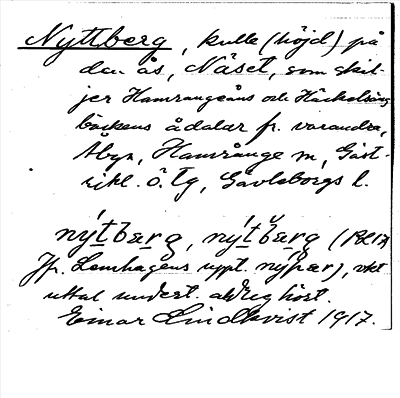 Nyttberg, kulle (höjd) på
den ås, Näset, som skil-
jer Hamrångeåns och Häckelsäng
bäckens ådalar fr. varandra,
Åbyn, Hamrånge sn, Gäst-
rikl. ö. tg, Gävleborgs l.
nýtbærg, nýtbærg (
Jfr. Lemhagens uppt. nýpær), vkt
uttal undert. aldrig hört.
Einar Lindkvist 1917.